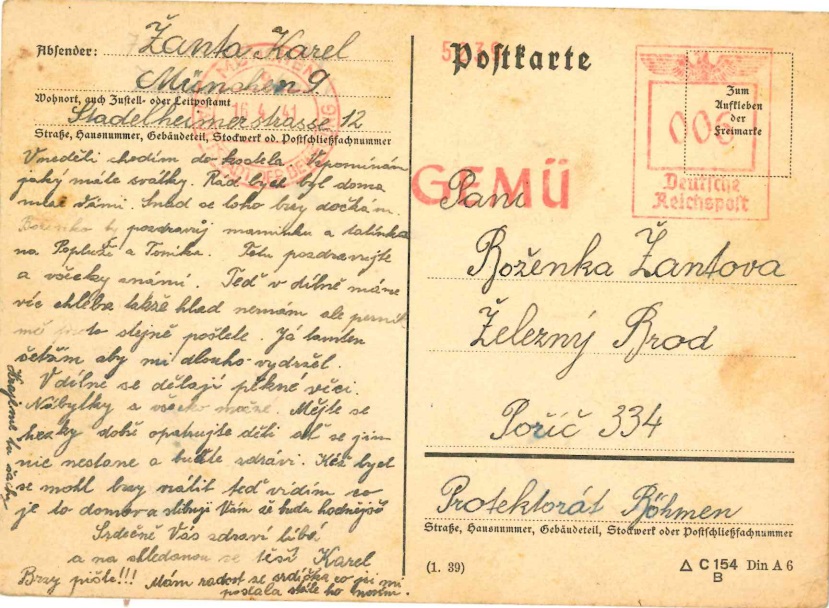 Absender: Žanta Karel
München 9
Wohnort, auch Zustell- oder Leitpostamt
Stadelheimerstrasse 12
Straße, Hausnummer, Gebäudeteil, Stockwerk od. Postschließfachnummer
16.4.41
V neděli chodím do kostela Vzpomínám
jaký máte svátky. Rád bych byl doma
mezi Vámi. Snad se toho brzy dočkám.
Boženko ty pozdravuj maminku a tatínka
na a Toníka. Tetu pozdravujte
a všecky známí. Teď v dílně máme
víc chleba takže hlad nemám ale perník
mě stejně pošlete. Já tamten
šetřím aby mi dlouho vydržel.
V dílně se dělají pěkné věci.
Nábytky a všecko možné. Mějte se
hezky dobře opatrujte děti ať se jim
nic nestane a buďte zdrávi. Kéž bych
se mohl brzy vrátit teď vidím co
je to domov a slibuji Vám že budu hodnější
Srdečně Vás zdraví líbá
a na shledanou se těší Karel
Brzy pište!!! Mám radost se srdíčka co jsi mi
poslala stále ho nosím.
Hrajeme tu šachy
Postkarte
Zum
Aufkleben
der
Freimarke
006
Deutsche
Reichspost
GEMÜ
Paní
Boženka Žantova
Železný Brod
Poříč 334
Protektorát Böhmen
Straße, Hausnummer, Gebäudeteil, Stockwerk oder Postschließfachnummer
(1. 39)
C 154 Din A 6
B